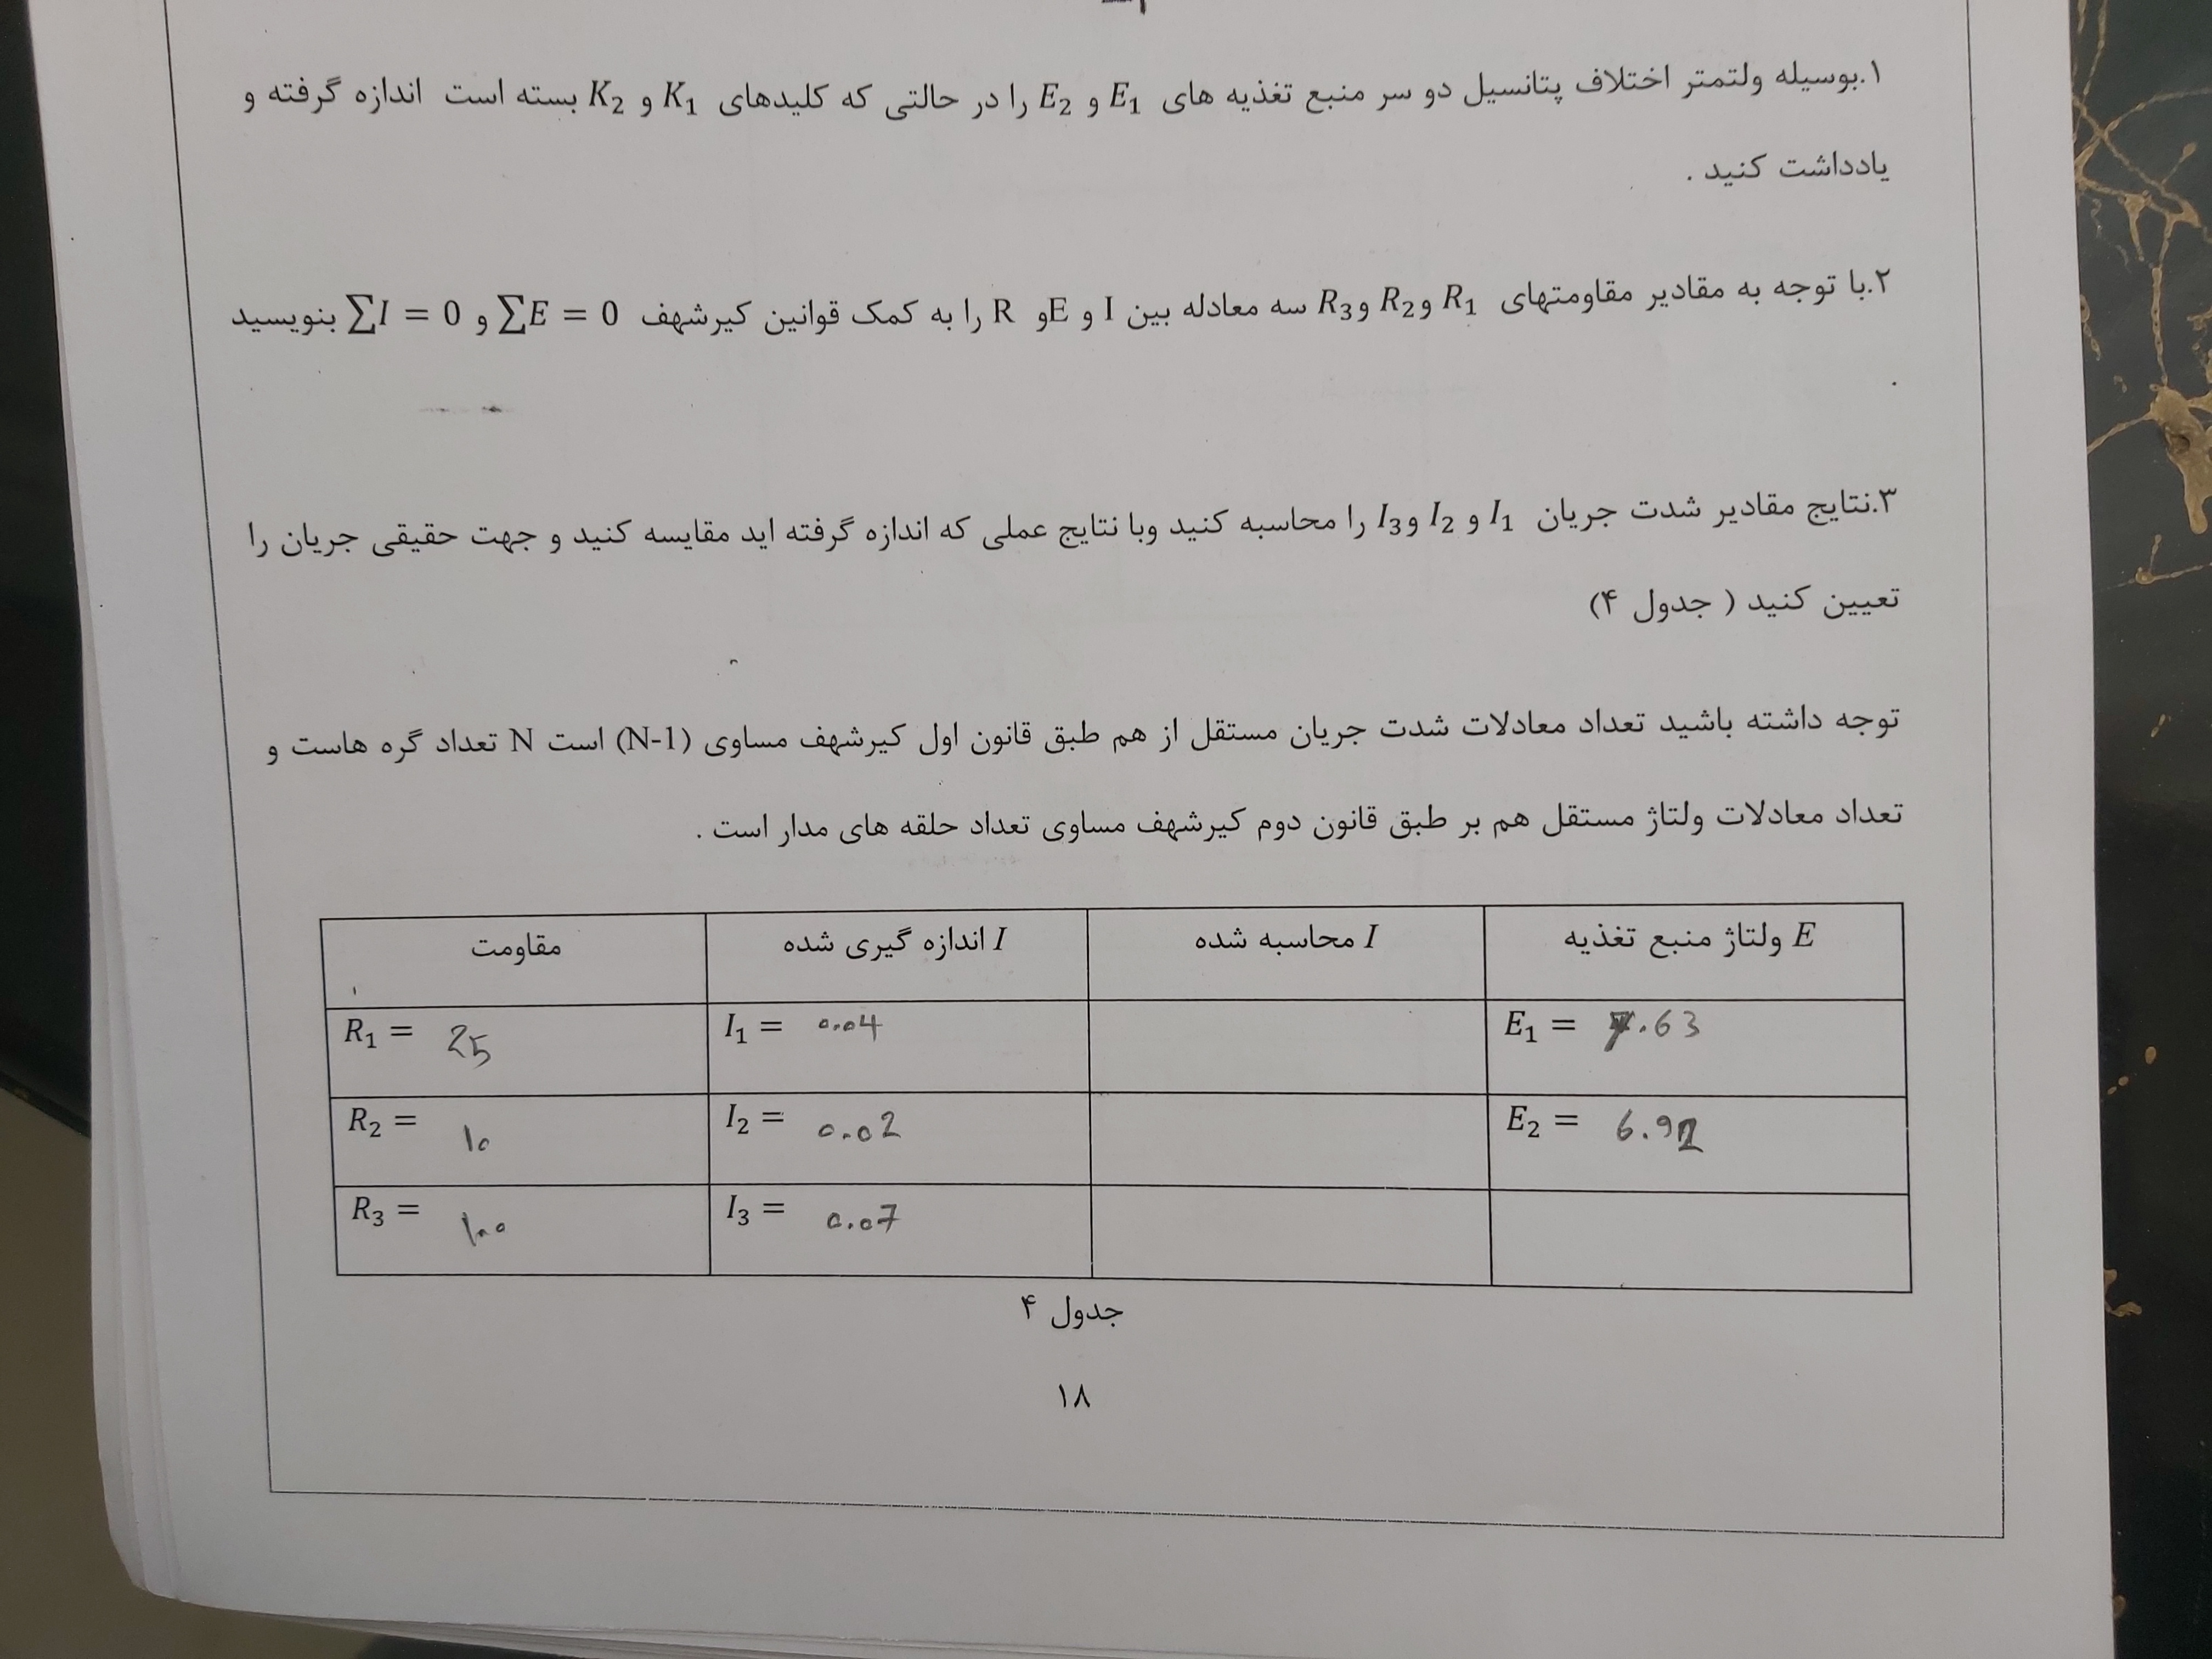 ۱.بوسیله ولتمتر اختلاف پتانسیل دو سر منبع تغذیه های E₁ و E₂ را در حالتی که کلیدهای K₁ و K₂ بسته است اندازه گرفته و
یادداشت کنید .
۲.با توجه به مقادیر مقاومتهای R₁ وR₂ وR₃ سه معادله بین I و Eو R را به کمک قوانین کیرشهف ∑E = 0 و ∑I = 0 بنویسید
۳.نتایج مقادیر شدت جریان I₁ و I₂ وI₃ را محاسبه کنید وبا نتایج عملی که اندازه گرفته اید مقایسه کنید و جهت حقیقی جریان را
تعیین کنید ( جدول ۴)
توجه داشته باشید تعداد معادلات شدت جریان مستقل از هم طبق قانون اول کیرشهف مساوی (N-1) است N تعداد گره هاست و
تعداد معادلات ولتاژ مستقل هم بر طبق قانون دوم کیرشهف مساوی تعداد حلقه های مدار است .
مقاومت I اندازه گیری شده I محاسبه شده E ولتاژ منبع تغذیه
R₁ = 25 I₁ = 0.04 E₁ = .63
R₂ = 10 I₂ = 0.02 E₂ = 6.9
R₃ = 100 I₃ = 0.07
جدول ۴
۱۸